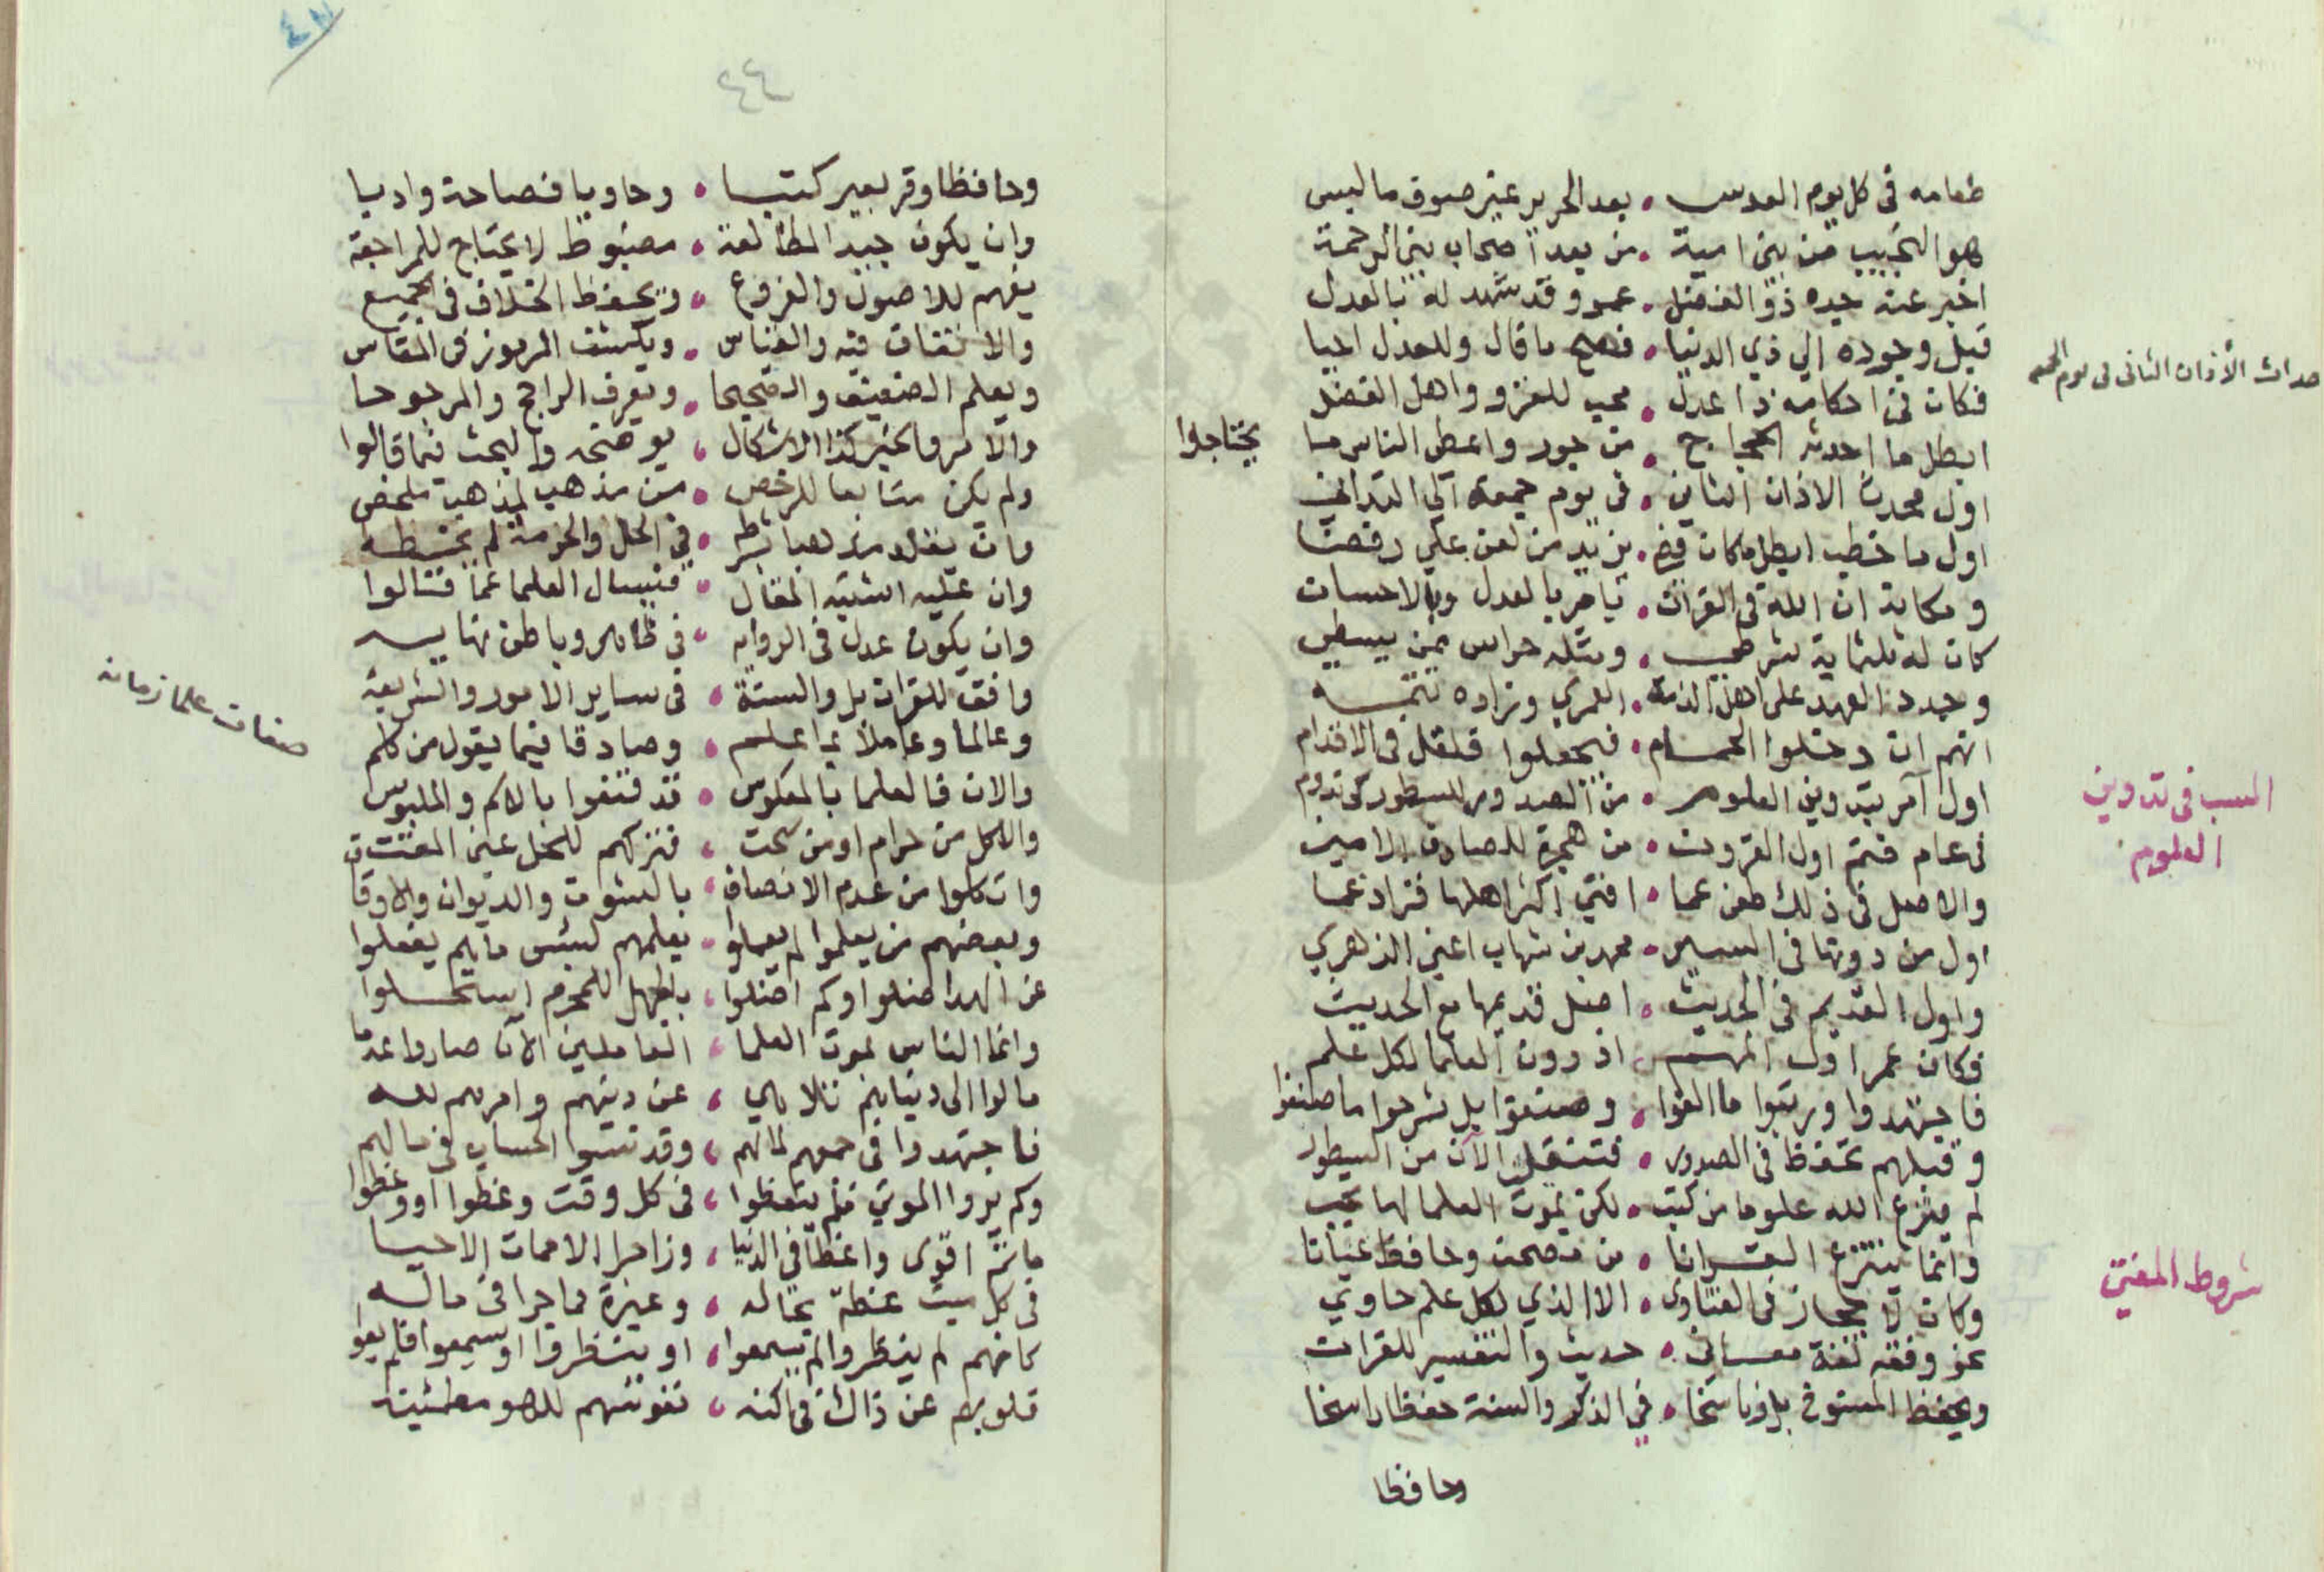 طعامه فى كل يوم العدس • بعد الحرير غير صوف ما لبس
هو النجيب من بنى امية • من بعد اصحاب بنى الرحمة
اخبر عنه جده ذو الفضل • عمر وقد شهد له بالعدل
قبل وجوده الى ذي الدنيا • فصح ما قال وللعدل احيا
احداث الأذان الثانى فى يوم الجمعه
فكان فى احكامه ذا عدل • محب للغزو واهل الفضل
ابطل ما احدثه الحجاج • من جور واعطى الناس ما
يحتاجوا
اول محدث الاذان الثاني • فى يوم جمعة الي التداني
اول ما خطب ابطل ما كان • يزيد من لعن علي رفضا
ومكانه ان الله فى القران • يامر بالعدل وبالاحسان
كان له ثلثماية شرطي • ومثله حراس
وجدد العهد على اهل الذمة • العمري وزاده تتمه
انهم ان دخلوا الحمام • فيجعلوا قلقل فى الاقدام
اول آمر بتدوين العلوم • من الصدور للسطور كى تدوم
السبب فى تدوين
العلوم
فى عام ختم اول القرون • من هجرة للصادق الامين
والاصل فى ذلك طعن عما • افنى اكثر اهلها فزاد غما
اول من دونها فى السير • محمد بن شهاب اعني الزهري
واول القديم فى الحديث • اصل قديمها مع الحديث
فكان عمر اول المهتم • اذ دون العلما لكل علم
فاجتهدوا ورتبوا ما الفوا • وصنفوا بل شرحوا ما صنفوا
وقبلهم تحفظ فى الصدور • فتنتقل الآن من السطور
لم ينزع الله علوما من كتب • لكن بموت العلما لها يجب
وانما ينتزع القرانا • من مصحف وحافظ عيانا
شروط المفتي
وكان لا يجاز فى الفتاوى • الا الذي لكل علم حاوي
نحو وفقه لغة معاني • حديث والتفسير للقران
ويحفظ المنسوخ بل وناسخا • في الذكر والسنة حفظا راسخا
وحافظا
٤٨
٤٤
وحافظا وقر بعير كتبا • وحاويا فصاحة وادبا
وان يكون جيد المطالعة • مضبوط لا يحتاج للمراجعة
يفهم للاصول والفروع • ويحفظ الخلاف فى الجميع
والاتفاق فيه والقياس • ويكشف الرموز فى المقاس
ويعلم الضعيف والصحيحا • ويعرف الراجح والمرجوحا
والامر كذا الاشكال • يوضحه والبحث فيما قالوا
ولم يكن متابعا للرخص • من مذهب لمذهب ملخص
وان يقلد مذهبا بشرطه • في الحل والحرمة لم
وان عليه اشتبه المقال • فيسال العلما عما قالوا
وان يكون عدل فى الروايه • فى ظاهر وباطن نهايه
وافق للقران بل والسنة • فى ساير الامور والشريعة
صفات علما زمانه
وعالما وعاملا بما علم • وصادقا فيما يقول من كلم
والان فالعلما بالمعكوس • قد قنعوا بالاكم والملبوس
والاكل من حرام او من سحت • فتركهم للحل عين المقت
واتكلوا من عدم الانصاف • بالسوت والديوان والاوقاف
وبعضهم من يعلموا لم يعملوا • بعلمهم لبئس ما هم يفعلوا
عن الهدا ضلوا وكم اضلوا • بالجهل للمحرم استحلوا
وانما الناس بموت العلما • العاملين الآن صاروا عدما
مالوا الى دنياهم • عن دينهم وامرهم لعبه
فاجتهدوا فى جمعهم لمالهم • وقد نسوا الحساب فى مالهم
وكم يروا الموتى فلم يتعظوا • فى كل وقت وعظوا او وعظوا
ما ثم اقوى واعظا فى الدنيا • وزاجرا الا ممات الاحيا
فى كل ميت عظة بحاله • وعبرة مما جرا فى ماله
كانهم لم ينظروا لم يسمعوا • او ينظروا او يسمعوا فلم يعوا
قلوبهم عن ذاك فى اكنه • نفوسهم للهو مطمئنه